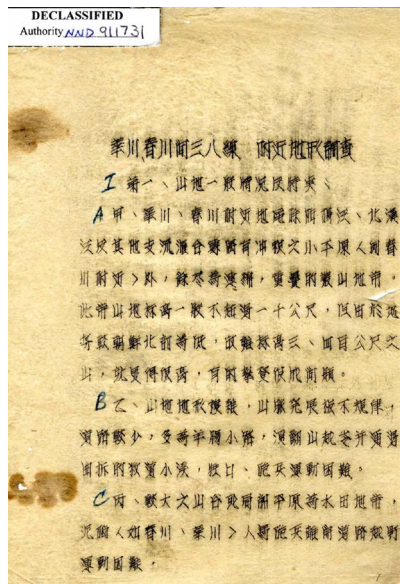 DECLASSIFIED
Authority NND 911731
華川、春川间三八線 附近地形調查
I 第一、山地一般情況及特
A 甲、華川、春川附近地區除 江、北漢
江及其他支流滙合處略有沖積之小平原 春
川附近>外，餘尽為連綿，重疊的叢山地帶，
此帶山地標高一般不超過一千公尺，但由於
朝鮮北部為低，故雖標高三、四百公尺之
山，就覺得很高，有的攀登很成問題。
B 乙、山地地形複雜，山嶺発展极不規律，
道路缺少，多為羊腸小路，須翻山越岺并通過
曲折的狹窄小溪，狹口、砲兵運動困難。
C 丙、較大之山谷及周圍平原為水田地帶，
春川、華川>人馬砲兵離開道路
運動困難。